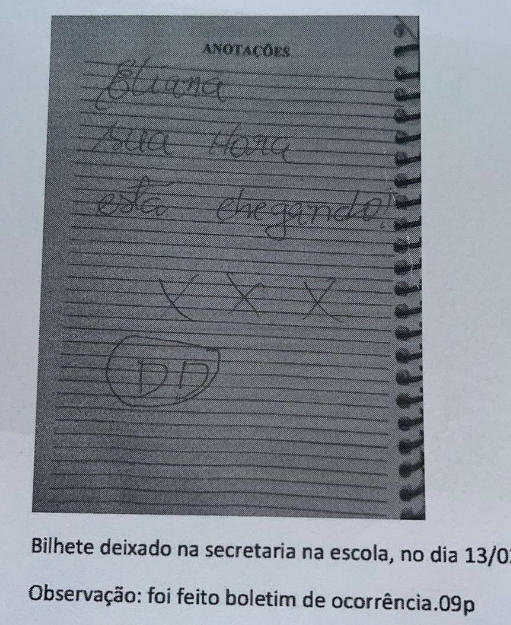 ANOTAÇÕES
Eliana
sua Hora
está chegando!
X X X
DD
Bilhete deixado na secretaria na escola, no dia 13/0
Observação: foi feito boletim de ocorrência.09p